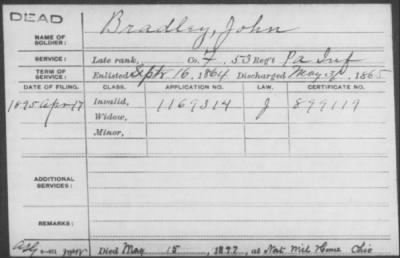 DEAD
NAME OF SOLDIER: Bradley, John
SERVICE: Late rank, Co. F, 53 Reg't Pa Inf
TERM OF SERVICE: Enlisted Sept 16, 1864 Discharged May 31, 1865
DATE OF FILING. CLASS. APPLICATION NO. LAW. CERTIFICATE NO.
1895 Apr 17 Invalid, 1169314 J 899119
Widow,
Minor,
ADDITIONAL SERVICES:
REMARKS:
Died May 15, 1897, at Nat Mil Home Ohio